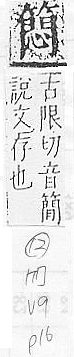 古限切音簡
說文存也
⑫
V9
P16